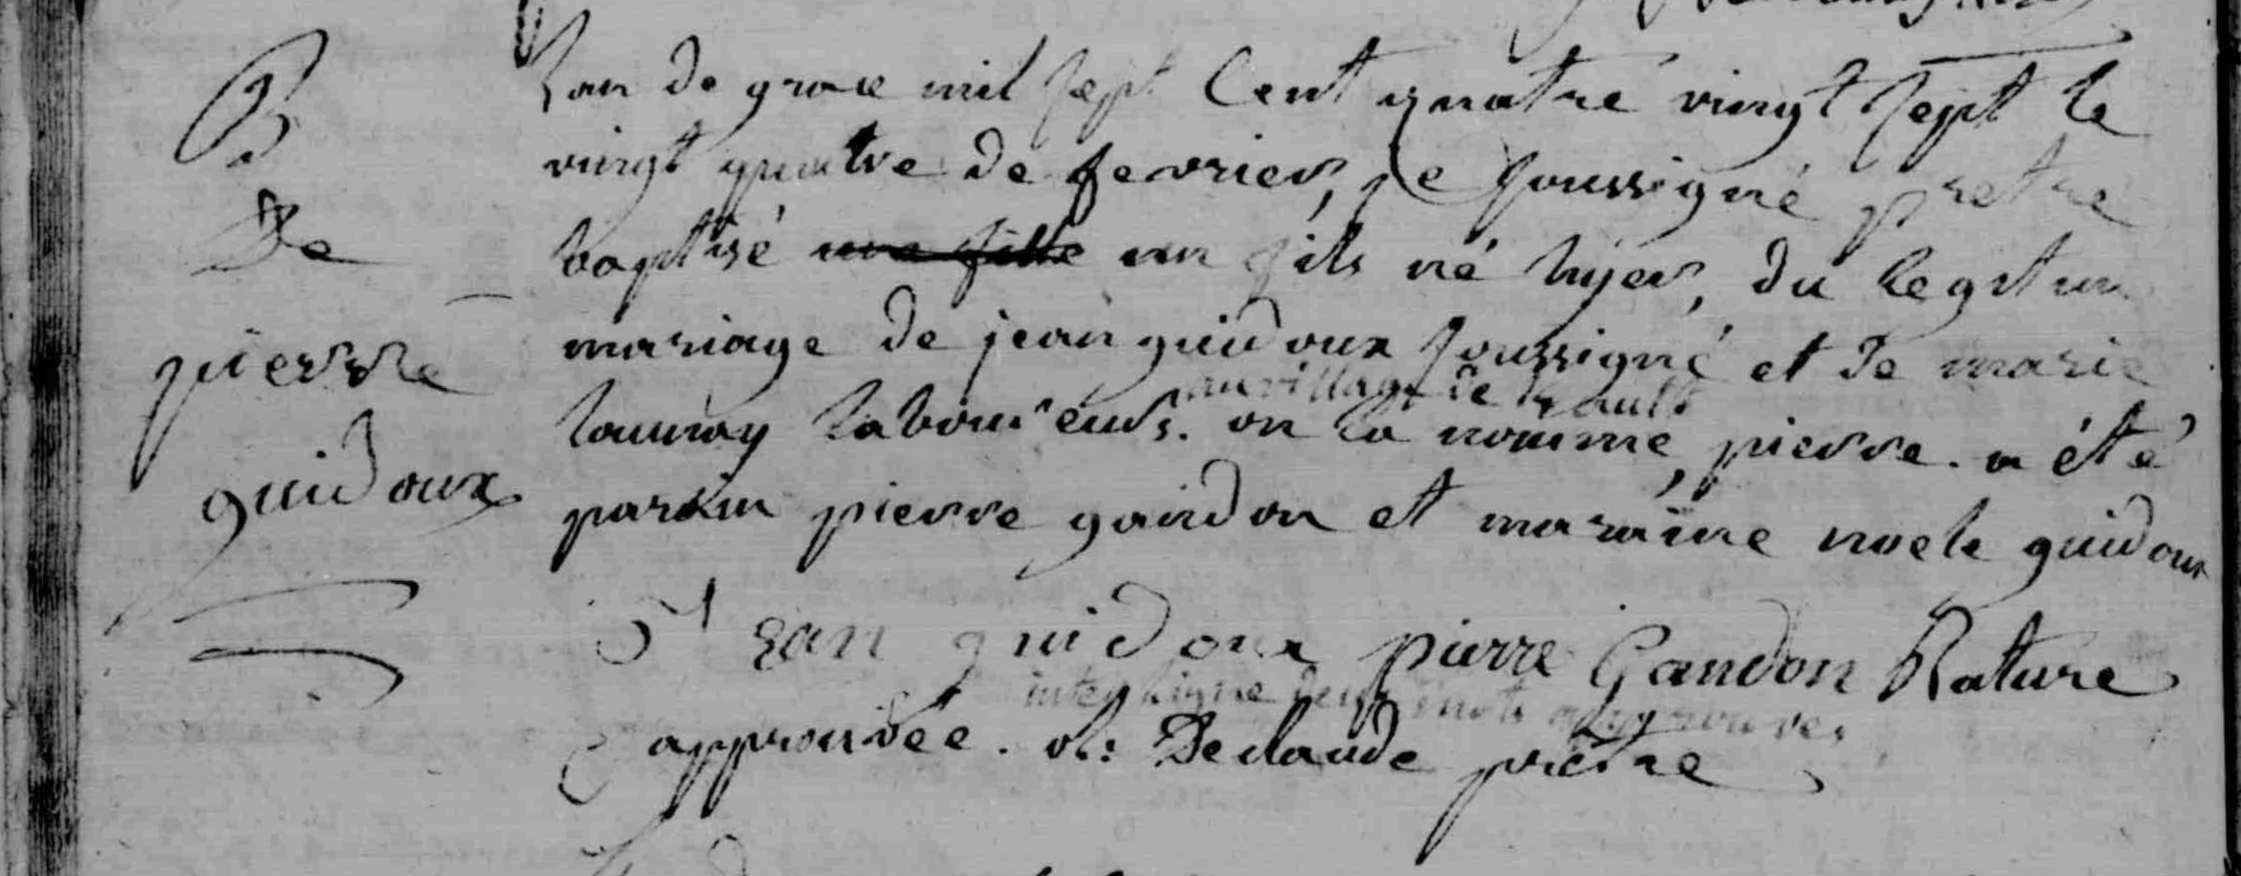 B
De
pierre
guidoux
Lan de grace mil sept Cent quatre vingt sept le
vingt quatre de fevrier, je soussigné pretre
baptisé une fille un fils né hyer, du legitim
mariage de jean guidoux soussigné et de marie
au village de
launay laboureurs. on la nommé, pierre. a été
parain pierre gandon et maraine noele guidoux
Jean guidoux pierre Gandon Rature
interligne deux mots approuvés
approuvée. Delaude prêtre